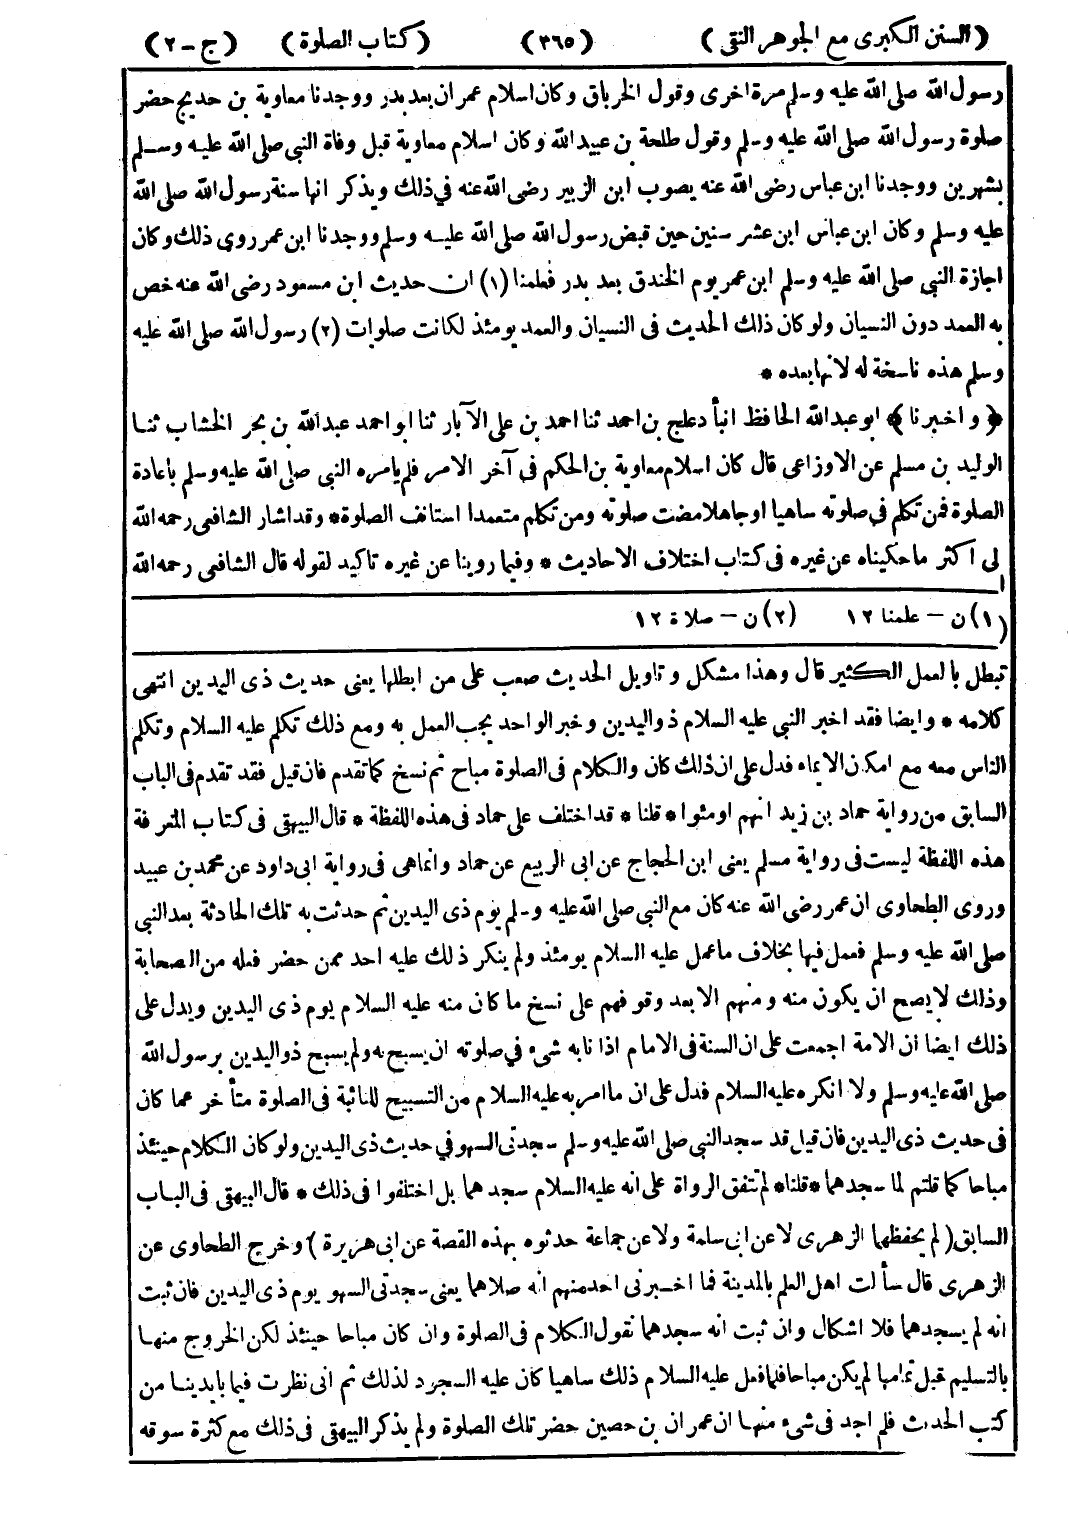 (السنن الكبرى مع الجوهر النقى) (٣٦٥) (كتاب الصلوة) (ج-٢)
رسول الله صلى الله عليه وسلم مرة اخرى وقول الخرباق وكان اسلام عمران بعد بدر ووجدنا معاوية بن حديج حضر
صلوة رسول الله صلى الله عليه وسلم وقول طلحة بن عبيد الله وكان اسلام معاوية قبل وفاة النبي صلى الله عليه وسلم
بشهرين ووجدنا ابن عباس رضى الله عنه يصوب ابن الزبير رضى الله عنه في ذلك ويذكر انها سنة رسول الله صلى الله
عليه وسلم وكان ابن عباس ابن عشر سنين حين قبض رسول الله صلى الله عليه وسلم ووجدنا ابن عمر روى ذلك وكان
اجازة النبي صلى الله عليه وسلم ابن عمر يوم الخندق بعد بدر فعلمنا (١) ان حديث ابن مسعود رضى الله عنه خص
به العمد دون النسيان ولو كان ذلك الحديث فى النسيان والعمد يومئذ لكانت صلوات (٢) رسول الله صلى الله عليه
وسلم هذه ناسخة له لانها بعده *
﴿ واخبرنا ﴾ ابو عبد الله الحافظ انبأ دعلج بن احمد ثنا احمد بن على الآبار ثنا ابو احمد عبد الله بن بحر الخشاب ثنا
الوليد بن مسلم عن الاوزاعى قال كان اسلام معاوية بن الحكم فى آخر الامر فلم يامره النبي صلى الله عليه وسلم باعادة
الصلوة فمن تكلم في صلوته ساهيا او جاهلا مضت صلوته ومن تكلم متعمدا استانف الصلوة * وقد اشار الشافعى رحمه الله
الى اكثر ما حكيناه عن غيره فى كتاب اختلاف الاحاديث * وفيما روينا عن غيره تاكيد لقوله قال الشافعى رحمه الله
(١) ن - علمنا ١٢ (٢) ن - صلاة ١٢
تبطل بالعمل الكثير قال وهذا مشكل وتاويل الحديث صعب على من ابطلها يعنى حديث ذى اليدين انتهى
كلامه * وايضا فقد اخبر النبي عليه السلام ذو اليدين وخبر الواحد يجب العمل به ومع ذلك تكلم عليه السلام وتكلم
الناس معه مع امكان الايماء فدل على ان ذلك كان والكلام فى الصلوة مباح ثم نسخ كما تقدم فان قيل فقد تقدم فى الباب
السابق من رواية حماد بن زيد انهم اومئوا * قلنا * قد اختلف على حماد فى هذه اللفظة * قال البيهقى فى كتاب المعرفة
هذه اللفظة ليست فى رواية مسلم يعنى ابن الحجاج عن ابى الربيع عن حماد وانما هى فى رواية ابى داود عن محمد بن عبيد
وروى الطحاوى ان عمر رضى الله عنه كان مع النبي صلى الله عليه وسلم يوم ذى اليدين ثم حدثت به تلك الحادثة بعد النبي
صلى الله عليه وسلم فعمل فيها بخلاف ما عمل عليه السلام يومئذ ولم ينكر ذلك عليه احد ممن حضر فعله من الصحابة
وذلك لا يصح ان يكون منه ومنهم الا بعد وقوفهم على نسخ ما كان منه عليه السلام يوم ذى اليدين ويدل على
ذلك ايضا ان الامة اجمعت على ان السنة فى الامام اذا نابه شىء في صلوته ان يسبح به ولم يسبح ذو اليدين برسول الله
صلى الله عليه وسلم ولا انكره عليه السلام فدل على ان ما امر به عليه السلام من التسبيح للنائبة فى الصلوة متأخر عما كان
فى حديث ذى اليدين فان قيل قد سجد النبي صلى الله عليه وسلم سجدتى السهو في حديث ذى اليدين ولو كان الكلام حينئذ
مباحا كما قلتم لما سجدهما * قلنا * لم تتفق الرواة على انه عليه السلام سجدهما بل اختلفوا فى ذلك * قال البيهقى فى الباب
السابق (لم يحفظهما الزهرى لا عن ابى سلمة ولا عن جماعة حدثوه بهذه القصة عن ابى هريرة) وخرج الطحاوى عن
الزهرى قال سألت اهل العلم بالمدينة فما اخبرنى احد منهم انه صلاهما يعنى سجدتى السهو يوم ذى اليدين فان ثبت
انه لم يسجدهما فلا اشكال وان ثبت انه سجدهما نقول الكلام فى الصلوة وان كان مباحا حينئذ لكن الخروج منها
بالتسليم قبل تمامها لم يكن مباحا فلما فعل عليه السلام ذلك ساهيا كان عليه السجود لذلك ثم انى نظرت فيما بايدينا من
كتب الحديث فلم اجد فى شىء منها ان عمران بن حصين حضر تلك الصلوة ولم يذكر البيهقى فى ذلك مع كثرة سوقه